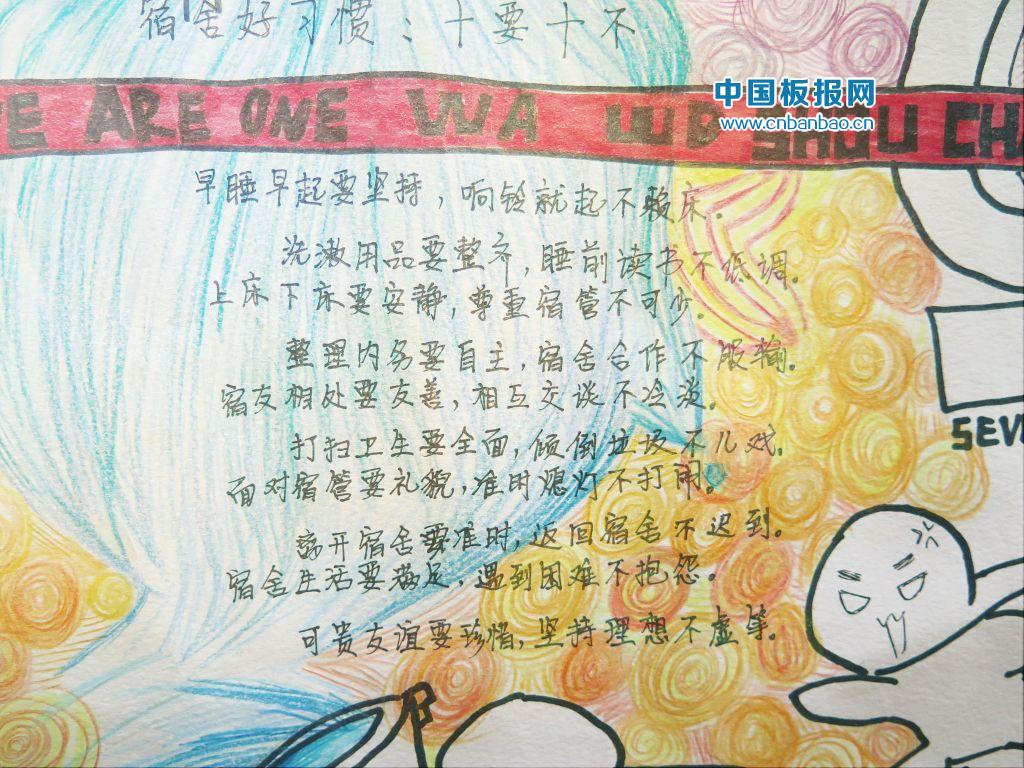 宿舍好习惯：十要十不
中国板报网
www.cnbanbao.cn
E ARE ONE WA WD SHOU CHA
早睡早起要坚持，响铃就起不赖床。
洗漱用品要整齐，睡前读书不低调。
上床下床要安静，尊重宿管不可少。
整理内务要自主，宿舍合作不服输。
宿友相处要友善，相互交谈不冷淡。
打扫卫生要全面，倾倒垃圾不儿戏。
面对宿管要礼貌，准时熄灯不打闹。
离开宿舍要准时，返回宿舍不迟到。
宿舍生活要满足，遇到困难不抱怨。
可贵友谊要珍惜，坚持理想不虚等。
SEV